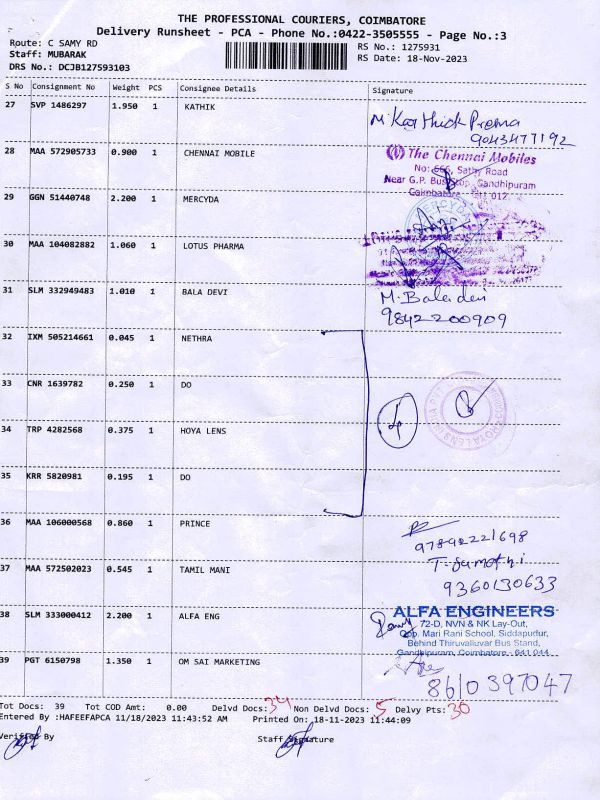 THE PROFESSIONAL COURIERS, COIMBATORE
Delivery Runsheet - PCA - Phone No.:0422-3505555 - Page No.:3
Route: C SAMY RD
Staff: MUBARAK
DRS No.: DCJB127593103
RS No.: 1275931
RS Date: 18-Nov-2023
S No Consignment No Weight PCS Consignee Details Signature
27 SVP 1486297 1.950 1 KATHIK
M. Karthick Prema
9043477192
28 MAA 572905733 0.900 1 CHENNAI MOBILE
The Chennai Mobiles
No: 566, Sathy Road
Near G.P. Bus Stop, Gandhipuram
Coimbatore 012
29 GGN 51440748 2.200 1 MERCYDA
30 MAA 104082882 1.060 1 LOTUS PHARMA
31 SLM 332949483 1.010 1 BALA DEVI
M. Baladevi
9842200909
32 IXM 505214661 0.045 1 NETHRA
33 CNR 1639782 0.250 1 DO
34 TRP 4282568 0.375 1 HOYA LENS
35 KRR 5820981 0.195 1 DO
4
36 MAA 106000568 0.860 1 PRINCE
97892221698
37 MAA 572502023 0.545 1 TAMIL MANI
T. Sumathi
9360130633
38 SLM 333000412 2.200 1 ALFA ENG
ALFA ENGINEERS
72-D, NVN & NK Lay-Out,
Opp. Mari Rani School, Siddapudur,
Behind Thiruvalluvar Bus Stand,
Gandhipuram, Coimbatore - 641 044
39 PGT 6150798 1.350 1 OM SAI MARKETING
8610397047
Tot Docs: 39 Tot COD Amt: 0.00 Delvd Docs: 34 Non Delvd Docs: 5 Delvy Pts: 30
Entered By :HAFEEFAPCA 11/18/2023 11:43:52 AM Printed On: 18-11-2023 11:44:09
Verified By Staff Signature